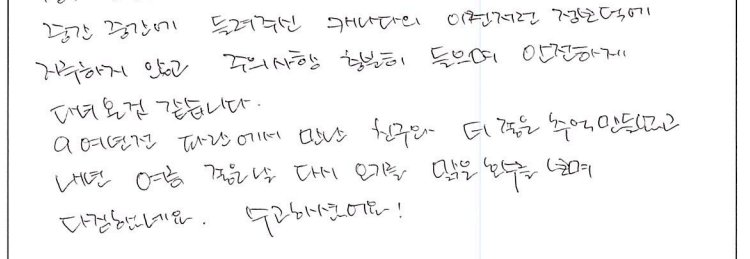 중간 중간에 들려주신 캐나다의 이런저런 정보덕에
지루하지 않고 주의사항 충분히 들으며 안전하게
다녀온것 같습니다.
9여년전 에서 만난 친구와 더 좋은 추억만들고
내년 여름 좋은날 다시 오기를 맑은 호수를 보며
다짐했네요. 수고하셨어요!